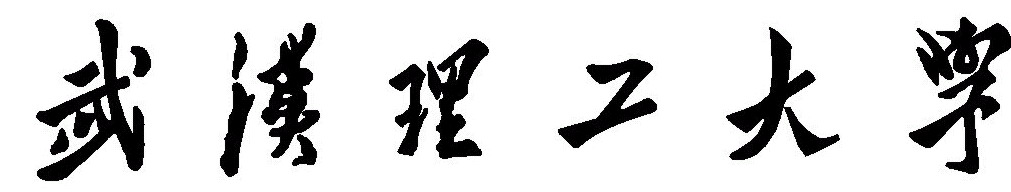 武漢理工大學